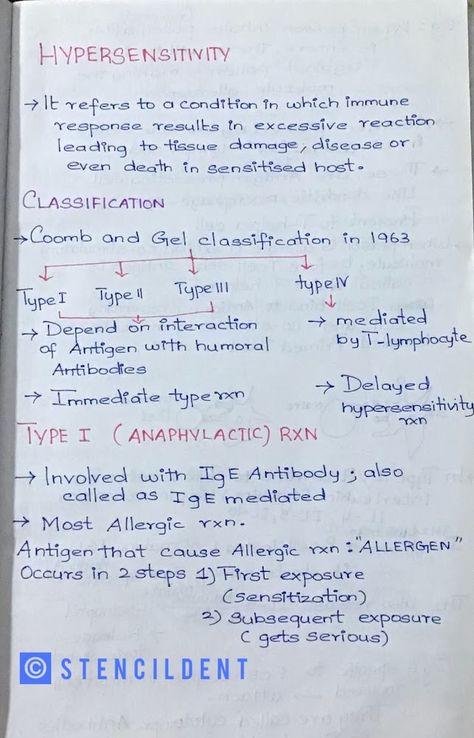 HYPERSENSITIVITY
→ It refers to a condition in which immune
response results in excessive reaction
leading to tissue damage, disease or
even death in sensitised host.
CLASSIFICATION
→ Coomb and Gel classification in 1963
Type I Type II Type III type IV
→ Depend on interaction
of Antigen with humoral
Antibodies
→ Immediate type rxn
→ mediated
by T-lymphocyte
→ Delayed
hypersensitivity
rxn
TYPE I (ANAPHYLACTIC) RXN
→ Involved with IgE Antibody ; also
called as IgE mediated
→ Most Allergic rxn.
Antigen that cause Allergic rxn : "ALLERGEN"
Occurs in 2 steps 1) First exposure
(sensitization)
2) Subsequent exposure
( gets serious)
© STENCILDENT